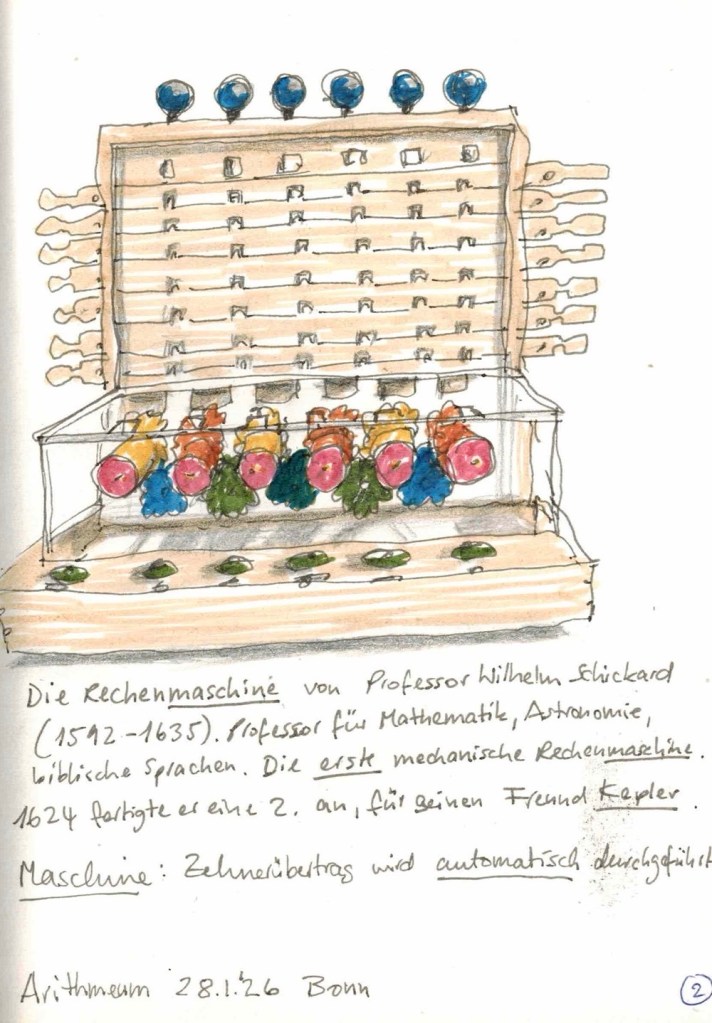 Die Rechenmaschine von Professor Wilhelm Schickard
(1592-1635). Professor für Mathematik, Astronomie,
biblische Sprachen. Die erste mechanische Rechenmaschine.
1624 fertigte er eine 2. an, für seinen Freund Kepler.
Maschine: Zehnerübertrag wird automatisch durchgeführt
Arithmeum 28.1.'26 Bonn
2